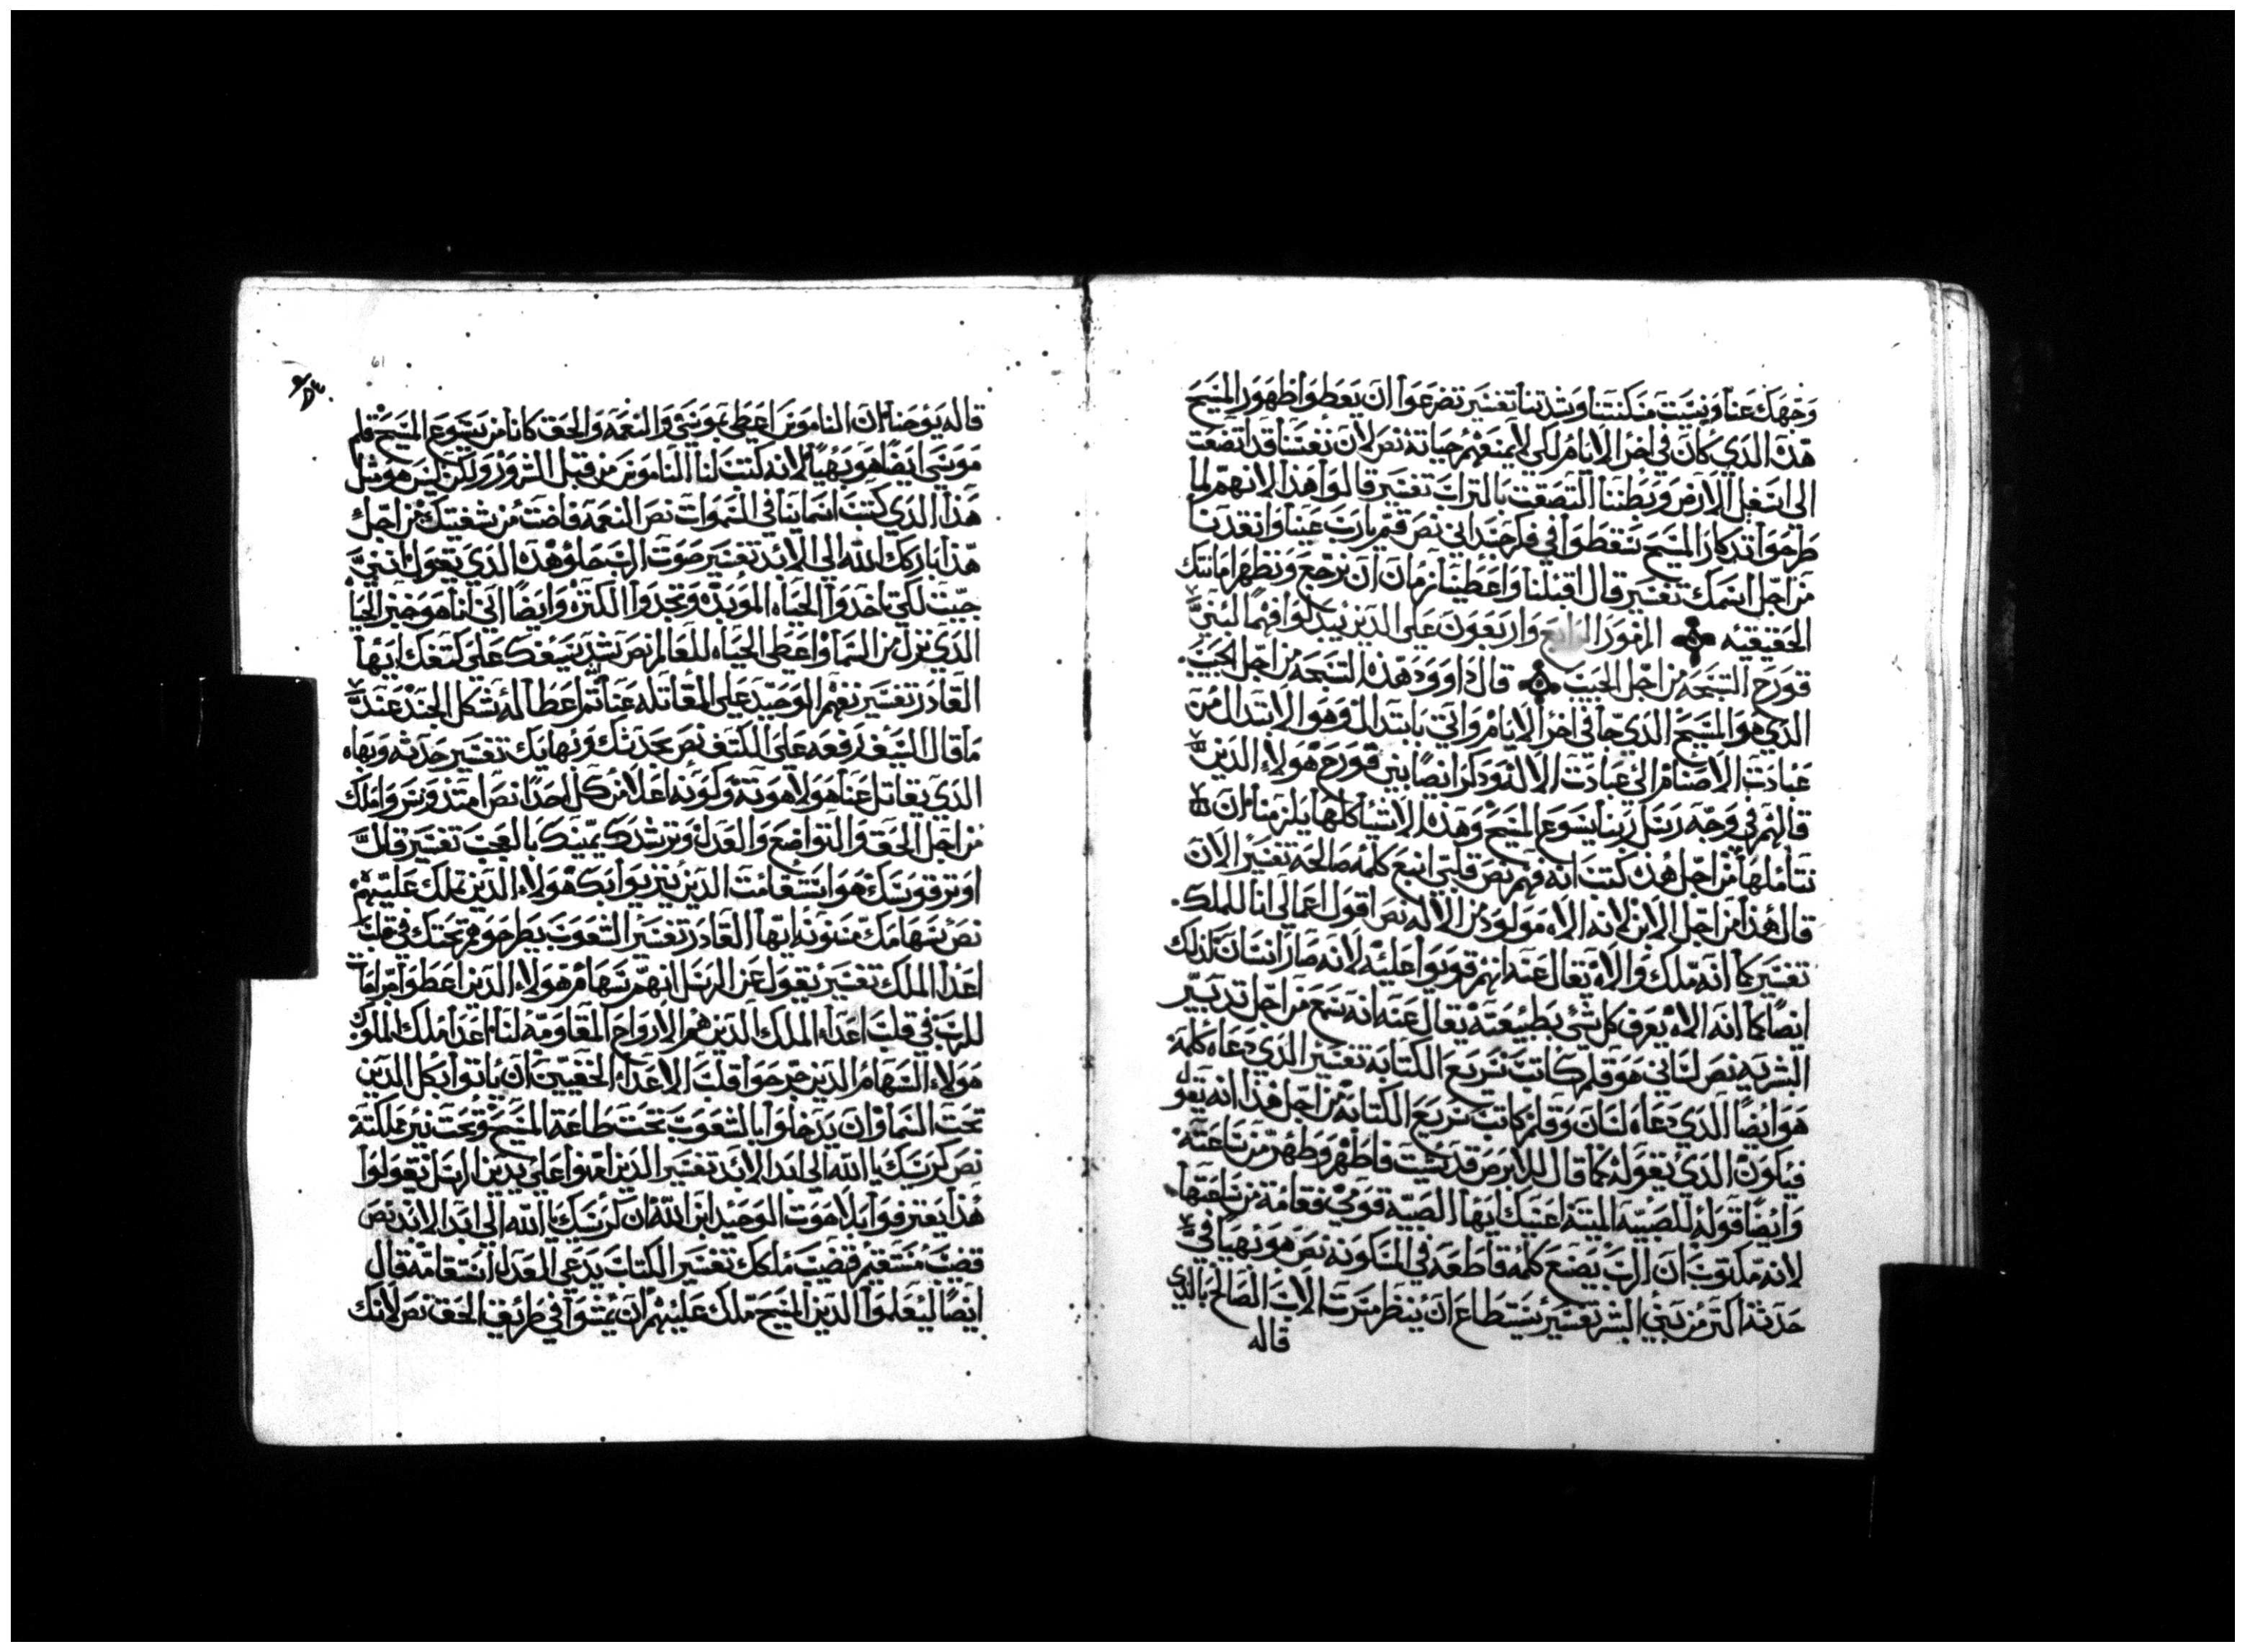 وجهك عنا ونسيت مسكنتنا وشدتنا تفسير تضرعوا ان يعطوا ظهور المسيح
هذا الدي كان في اخر الايام لكي لا يمنعهم حياته نص لان نفسنا قد اتضعت
الى اسفل الارض وبطننا التصقت بالتراب تفسير قالوا هذا لانهم لما
طرحوا تدكار المسيح سقطوا في فكر جسداني نص قم يارب عيننا وانقدنا
من اجل اسمك تفسير قال اقبلنا واعطينا زمان ان نرجع ونظهر امانتك
الحقيقيه المزمور الرابع واربعون على الدين يبدلوا فهما لبني
قورح التسبحه من اجل الحبيب قال داوود هذه التسبحه من اجل الحبيب
الدي هو المسيح الدي جا في اخر الايام واتي بابتدال وهو الابتدال من
عبادت الاصنام الى عبادت الاله ودكر ايضا بني قورح هولاء الدين
قالهم في وجه رسل ربنا يسوع المسيح وهذه الاشيا كلها يلزمنا ان
نتاملها من اجل هذه كتب انه فهم نص قلبي انبع كلمه صالحه تفسير الان
قال هذا من اجل الابن لانه الاه مولود من الاله نص اقول اعمالي انا للملك
تفسير كما انه ملك والاه يقال عنه انهم قويوا عليه لانه صار انسان كدلك
ايضا كما انه الاه يعرف كل شي بطبيعته يقال عنه انه سمع من اجل تدبير
البشريه نص لساني هو قلم كاتب سريع الكتابه تفسير الدي دعاه كلمه
هو ايضا الدي دعاه لسان وقلم كاتب سريع الكتابه من اجل هذا انه يقول
فيكون الدي يقوله كما قال للابرص قد شيت فاطهر وطهر من ساعته
وايضا قوله للصبيه الميته اعنيك ايها الصبيه قومي فقامه من ساعتها
لانه مكتوب ان الرب يصنع كلمه قاطعه في المسكونه نص هو بهيا في
حدثه اكثر من بني البشر تفسير يستطاع ان ينظر مسرت الاب الصالح بالدي
قاله
61
قاله يوحنا ان الناموس اعطي بموسى والنعمه والحق كانا من يسوع المسيح قلم
موسى ايضا هو بهيا لانه كتب لنا الناموس من قبل الرموز ولكن ليس هو مثل
هذا الدي كتب اسماينا في السموات نص النعمه فاضت من شفتيك من اجل
هذا باركك الله الى الابد تفسير صوت الرب حلو هذه الدي يقول انني
جيت لكي تاخدوا الحياه الموبده وتجدوا الكتره وايضا اني انا هو خبز الحياه
الدي نزل من السما واعطى الحياه للعالم نص تشد بسيفك على كتفك ايها
القادر تفسير نفهم الوحيد على المقاتله عنا ثم اعطا له شكل الجند عند
ما قال السيف رفعه على الكتف نص بحدتك وبهايك تفسير حدثه وبهاه
الدي يقاتل عنا هو لاهوته وكونه اعلا من كل احدا نص امتد وسر واملك
من اجل الحق والتواضع والعدل وترشدك يمينك بالعجب تفسير قال
اوتر قوسك هو استقامت الدين يتربوا بك هولاء الدين تملك عليهم
نص سهامك مسنونه ايها القادر تفسير الشعوب يطرحو هم تحتك في قلب
اعدا الملك تفسير يقول عن الرسل انهم سهام هولاء الدين اعطوا
للرب في قلب اعداء الملك الدين هم الارواح المقاومه لنا اعدا ملك الملوك
هولاء السهام الدين جرحوا قلب الاعداء الخفيين ان ياتوا بكل الدين
تحت السما وان يدخلوا بالشعوب تحت طاعة المسيح وتحت نير مملكته
نص كرسيك يا الله الى ابد الابد تفسير الدين امنوا على يدين الرسل يقولوا
هذا يعترفوا بلاهوت الوحيد ابن الله ان كرسيك يا الله الى ابد الابد نص
قضيب مستقيم قضيب ملكك تفسير الكتاب يدعى العدل استقامه قال
ايضا ليعلموا الدين المسيح تملك عليهم ان يمشوا في طريق الحق نص لانك